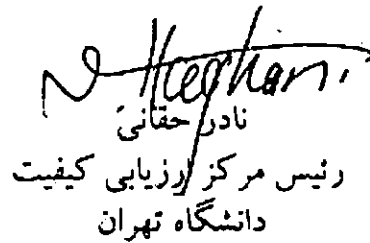 N Haghani
نادر حقانی
رئیس مرکز ارزیابی کیفیت
دانشگاه تهران